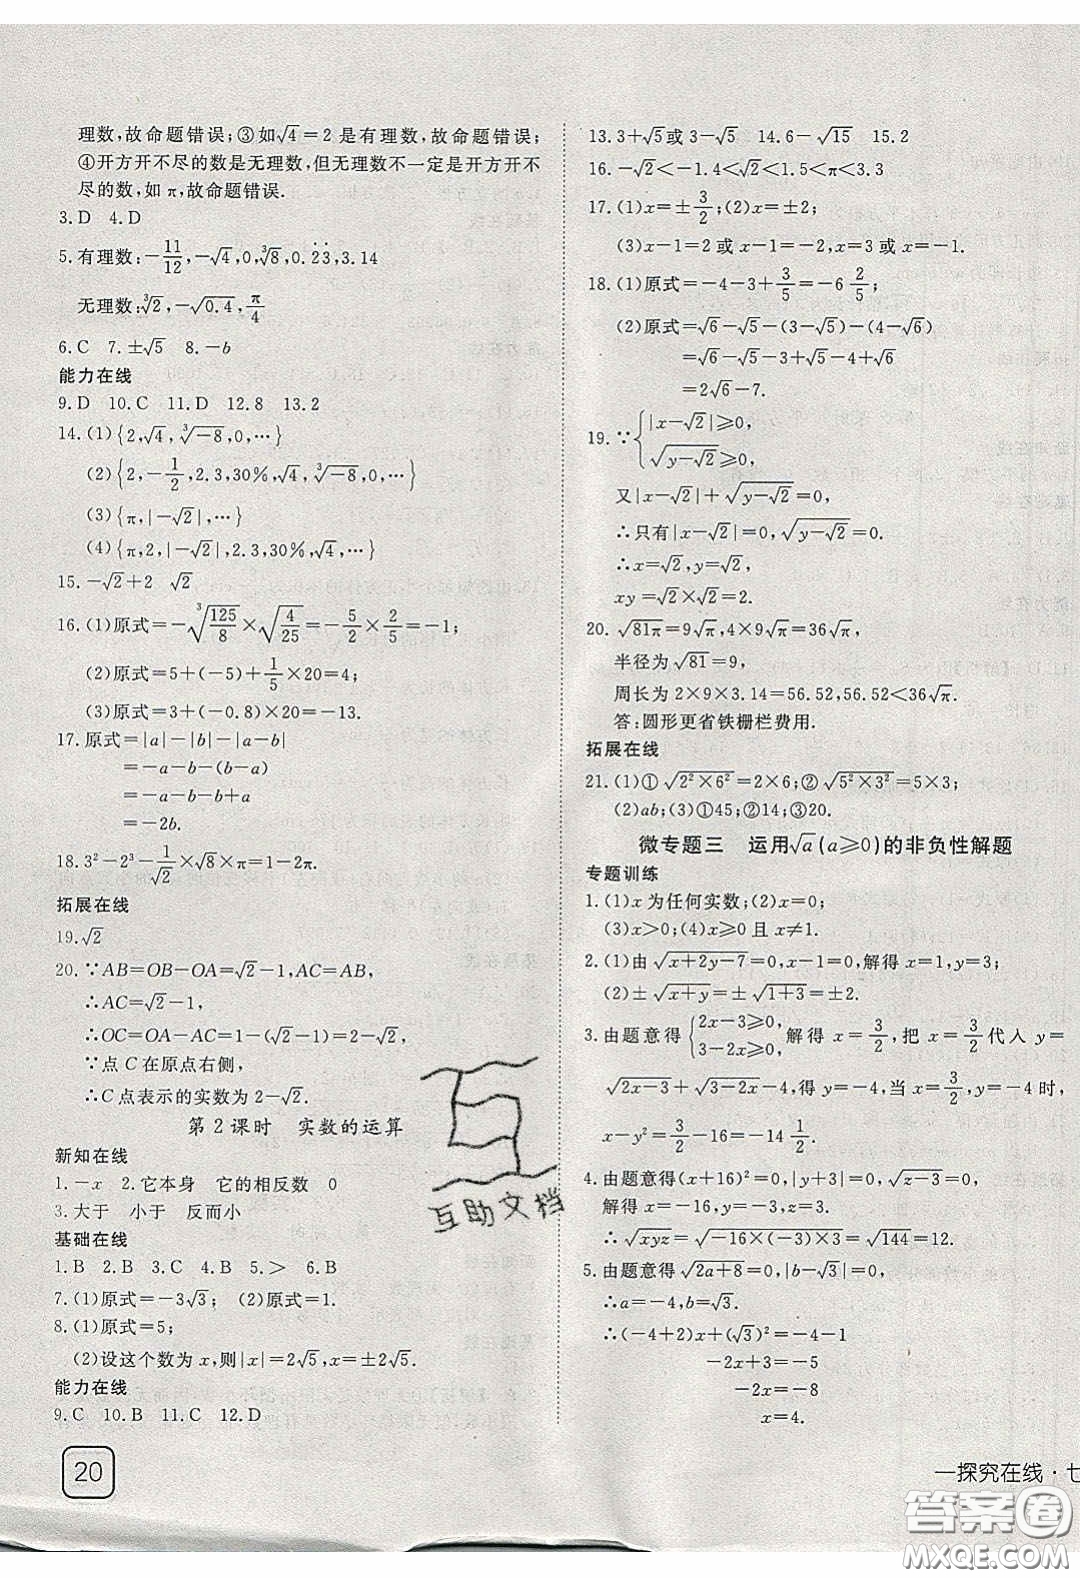 理数,故命题错误;③如√4=2是有理数,故命题错误;
④开方开不尽的数是无理数,但无理数不一定是开方开不
尽的数,如π,故命题错误.
3.D 4.D
5.有理数:-11/12,-√4,∛8,0.2̇3̇,3.14
无理数:∛2,-√0.4,π/4
6.C 7.±√5 8.-b
能力在线
9.D 10.C 11.D 12.8 13.2
14.(1){2,√4,∛-8,0,…}
(2){2,-1/2,2.3,30%,√4,∛-8,0,…}
(3){π,|-√2|,…}
(4){π,2,|-√2|,2.3,30%,√4,…}
15.-√2+2 √2
16.(1)原式=-∛(125/8)×√(4/25)=-5/2×2/5=-1;
(2)原式=5+(-5)+1/5×20=4;
(3)原式=3+(-0.8)×20=-13.
17.原式=|a|-|b|-|b-a|
=-a-b-(b-a)
=-a-b-b+a
=-2b.
18.3²-2³-1/√2×√8×π=1-2π.
拓展在线
19.√2
20.∵AB=OB-OA=√2-1,AC=AB,
∴AC=√2-1,
∴OC=OA-AC=1-(√2-1)=2-√2.
∵点C在原点右侧,
∴C点表示的实数为2-√2.
第2课时 实数的运算
新知在线
1.-x 2.它本身 它的相反数 0
3.大于 小于 反而小
基础在线
1.B 2.B 3.C 4.C 5.> 6.B
7.(1)原式=-3√3; (2)原式=1.
8.(1)原式=5;
(2)设这个数为x,则|x|=2√5,x=±2√5.
能力在线
9.C 10.B 11.C 12.D
20
13.3+√5或3-√5 14.6-√15 15.2
16.-√2<-1.4<√2<1.5<π<3.3
17.(1)x=±3/2;(2)x=±2;
(3)x-1=2或x-1=-2,x=3或x=-1.
18.(1)原式=-4-3+3/5=-6 2/5;
(2)原式=√6-√5-(3-√5)-(4-√6)
=√6-√5-3+√5-4+√6
=2√6-7.
19.∵{|x-√2|≥0,
√(y-√2)≥0,
又|x-√2|+√(y-√2)=0,
∴只有|x-√2|=0,√(y-√2)=0.
∴x=√2,y=√2.
xy=√2×√2=2.
20.√81π=9√π,4×9√π=36√π,
半径为√81=9,
周长为2×9×3.14=56.52,56.52<36√π.
答:圆形更省铁栅栏费用.
拓展在线
21.(1)①√(2²×6²)=2×6;②√(5²×3²)=5×3;
(2)ab;(3)①45;②14;③20.
微专题三 运用√a(a≥0)的非负性解题
专题训练
1.(1)x为任何实数;(2)x=0;
(3)x>0;(4)x≥0且x≠1.
2.(1)由√(x+2y-7)=0,x=1,解得x=1,y=3;
(2)±√(x+y)=±√(1+3)=±2.
3.由题意得{2x-3≥0,3-2x≥0,解得x=3/2,把x=3/2代入y=
√(2x-3)+√(3-2x)-4,得y=-4,当x=3/2,y=-4时,
x-y²=3/2-16=-14 1/2.
4.由题意得(x+16)²=0,|y+3|=0,√(z-3)=0,
解得x=-16,y=-3,z=3.
∴√xyz=√(-16×(-3)×3)=√144=12.
5.由题意得√(2a+8)=0,|b-√3|=0,
∴a=-4,b=√3.
∴(-4+2)x+(√3)²=-4-1
-2x+3=-5
-2x=-8
x=4.
一探究在线·七
互助文档
答案圈
MXQE.COM